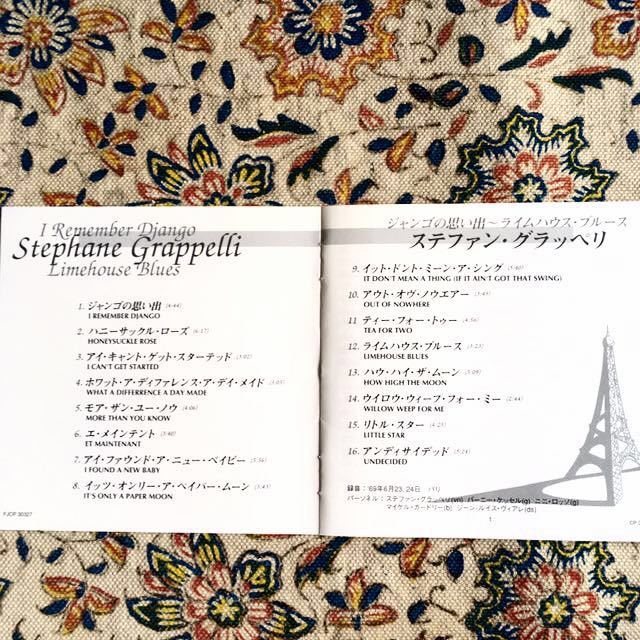 I Remember Django
Stephane Grappelli
Limehouse Blues
1. ジャンゴの思い出 (4:44)
I REMEMBER DJANGO
2. ハニーサックル・ローズ (6:17)
HONEYSUCKLE ROSE
3. アイ・キャント・ゲット・スターテッド (3:02)
I CAN'T GET STARTED
4. ホワット・ア・ディファレンス・ア・デイ・メイド (3:05)
WHAT A DIFFERRENCE A DAY MADE
5. モア・ザン・ユー・ノウ (4:06)
MORE THAN YOU KNOW
6. エ・メインテント (3:40)
ET MAINTENANT
7. アイ・ファウンド・ア・ニュー・ベイビー (5:56)
I FOUND A NEW BABY
8. イッツ・オンリー・ア・ペイパー・ムーン (3:43)
IT'S ONLY A PAPER MOON
FJCP 30327
ジャンゴの思い出〜ライムハウス・ブルース
ステファン・グラッペリ
9. イット・ドント・ミーン・ア・シング (3:40)
IT DON'T MEAN A THING (IF IT AIN'T GOT THAT SWING)
10. アウト・オヴ・ノウエアー (3:49)
OUT OF NOWHERE
11. ティー・フォー・トゥー (4:56)
TEA FOR TWO
12. ライムハウス・ブルース (3:23)
LIMEHOUSE BLUES
13. ハウ・ハイ・ザ・ムーン (3:09)
HOW HIGH THE MOON
14. ウイロウ・ウィープ・フォー・ミー (2:44)
WILLOW WEEP FOR ME
15. リトル・スター (4:25)
LITTLE STAR
16. アンディサイデッド (5:24)
UNDECIDED
録音：'69年6月23, 24日
パーソネル：ステファン・グラッペリ(vn) バーニー・ケッセル(g) ニニ・ロッソ(g)
マイケル・ガードリー(b) ジーン・ルイス・ヴィアレ(ds)
1
CP